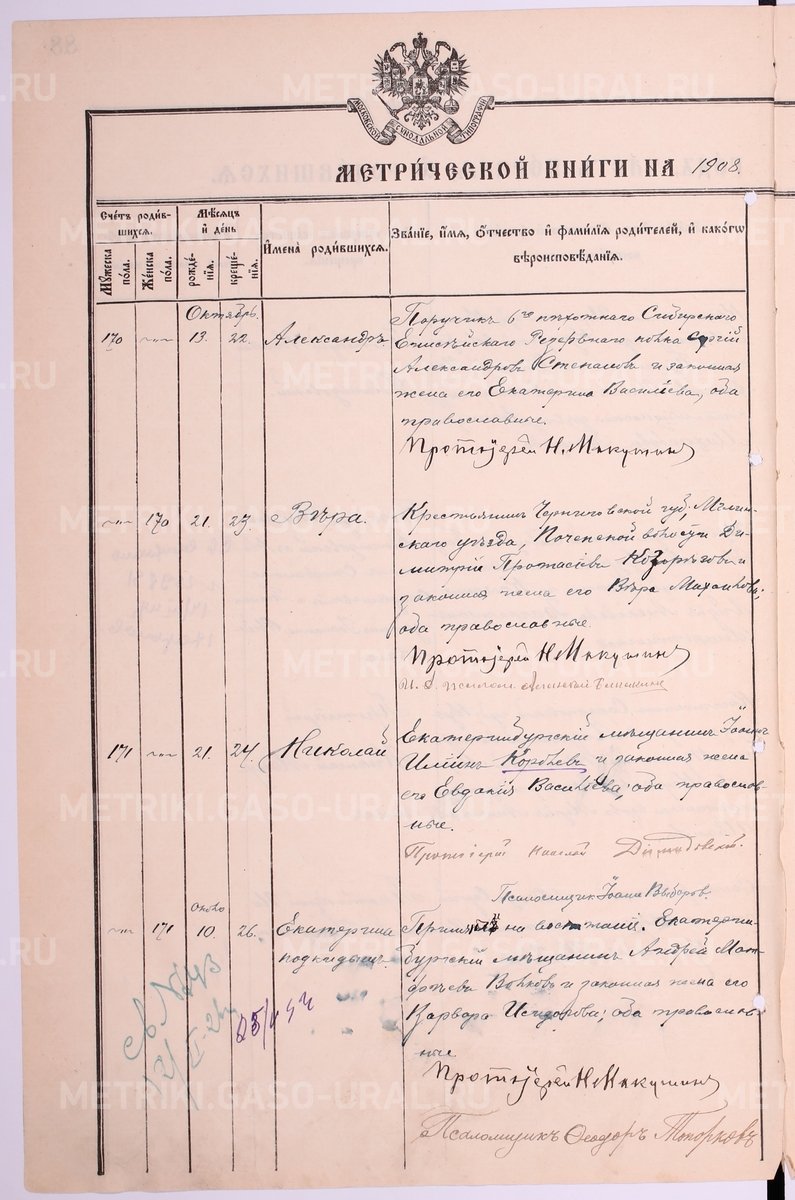 88
METRIKI.GASO-URAL.RU
МОСКОВСКОЙ СѴНОДАЛЬНОЙ ТИПОГРАФІИ
МЕТРИ́ЧЕСКОЙ КНИ́ГИ НА 1908.
Счетъ роди́вшихся.
Мꙋ́жеска пола.
Же́нска пола.
Мѣ́сяцъ и҆ де́нь
рожде́нїѧ.
креще́нїѧ.
И҆мена̀ роди́вшихся.
Зва́нїе, и҆́мѧ, ѻ҆́тчество и҆ фамилїѧ роди́телей, и҆ како́гѡ вѣроисповѣ́данїѧ.
Октябрь.
170 —"— 13. 22. Александръ
Поручикъ 6го пѣхотнаго Сибирскаго
Енисѣйскаго Резервнаго полка Сергій
Александровъ Степановъ и законная
жена его Екатерина Васильева, оба
православные.
Протоіерей Н. Микушинъ
—"— 170 21. 23. Вѣра.
Крестьянинъ Черниговской губ., Мглин-
скаго уѣзда, Почепской волости Ди-
митрій Протасіевъ Козорѣзовъ и
законная жена его Вѣра Михаилова;
оба православные.
Протоіерей Н. Микушинъ
171 —"— 21. 24. Николай
Екатеринбургскій мѣщанинъ Іоаннъ
Илiинъ Коробьевъ и законная жена
его Евдокія Васильева; оба православ-
ные.
Протоіерей Николай
Псаломщикъ Іоаннъ Выборовъ.
—"— 171 около 10. 26. Екатерина подкидышъ.
на воспитаніе. Екатерин-
бургскій мѣщанинъ Андрей Мат-
фѣевъ Волковъ и законная жена его
Варвара Исидорова; оба православ-
ные.
Протоіерей Н. Микушинъ
Псаломщикъ Ѳеодоръ Топорковъ